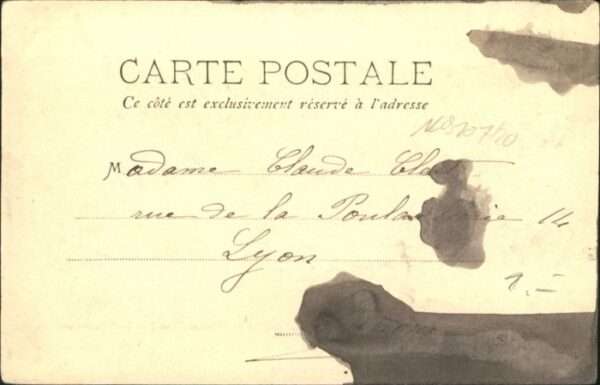 CARTE POSTALE
Ce côté est exclusivement réservé à l'adresse
Madame Claude
rue de la 14
Lyon
1.-